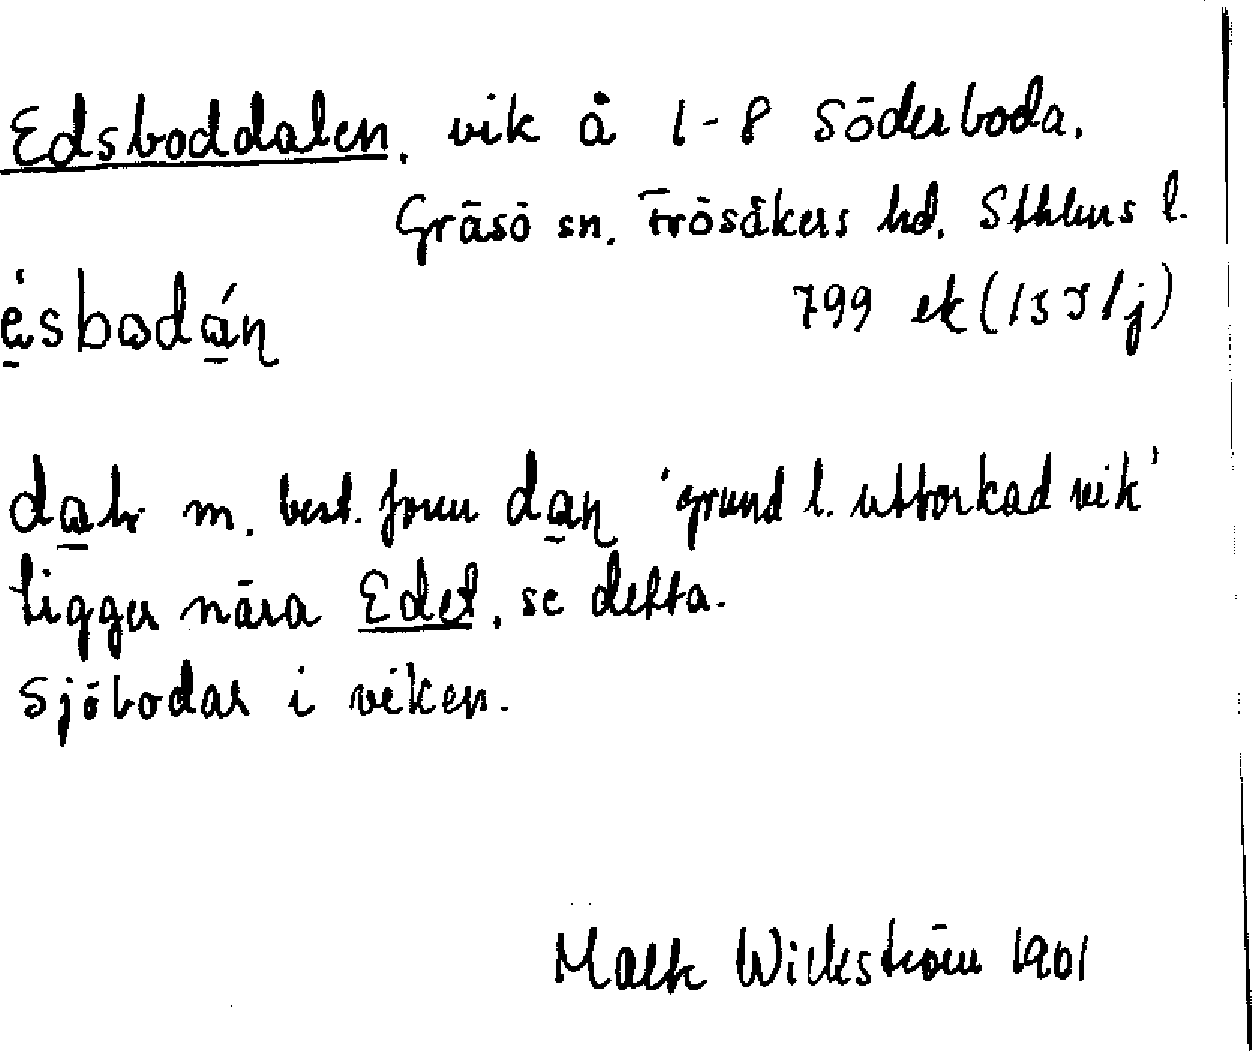 Edsboddalen. vik å 1-8 Söderboda.
Gräsö sn. Frösåkers hd. Sthlms l.
ésbodán
799 ek (15J1j)
m. best. form dan 'grund l. uttorkad vik'
ligger nära Edet, se detta.
Sjöbodar i viken.
Wickström 1901